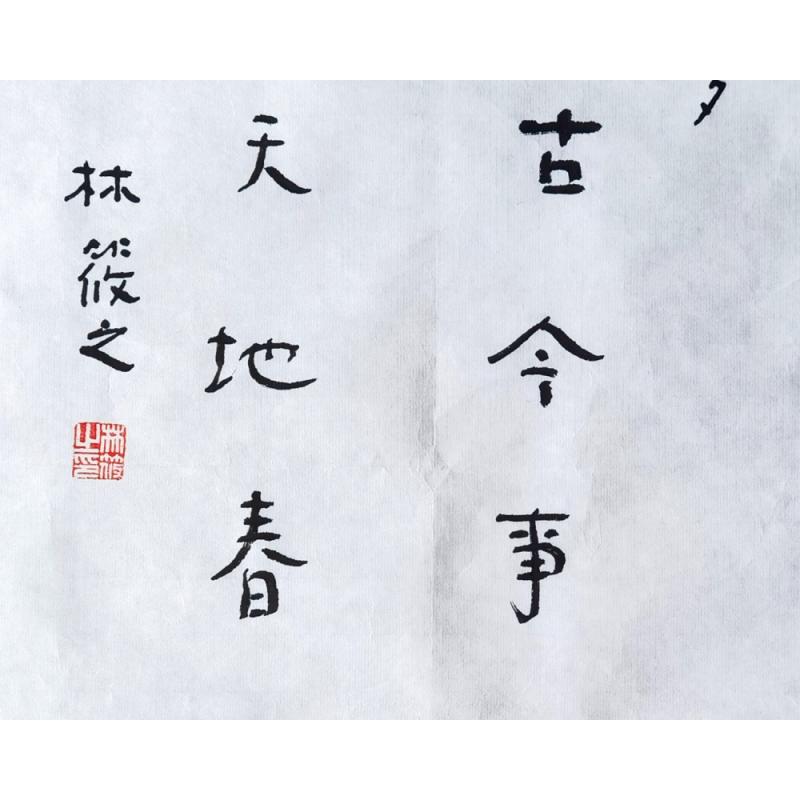 古今事
天地春
林筱之
林筱之印